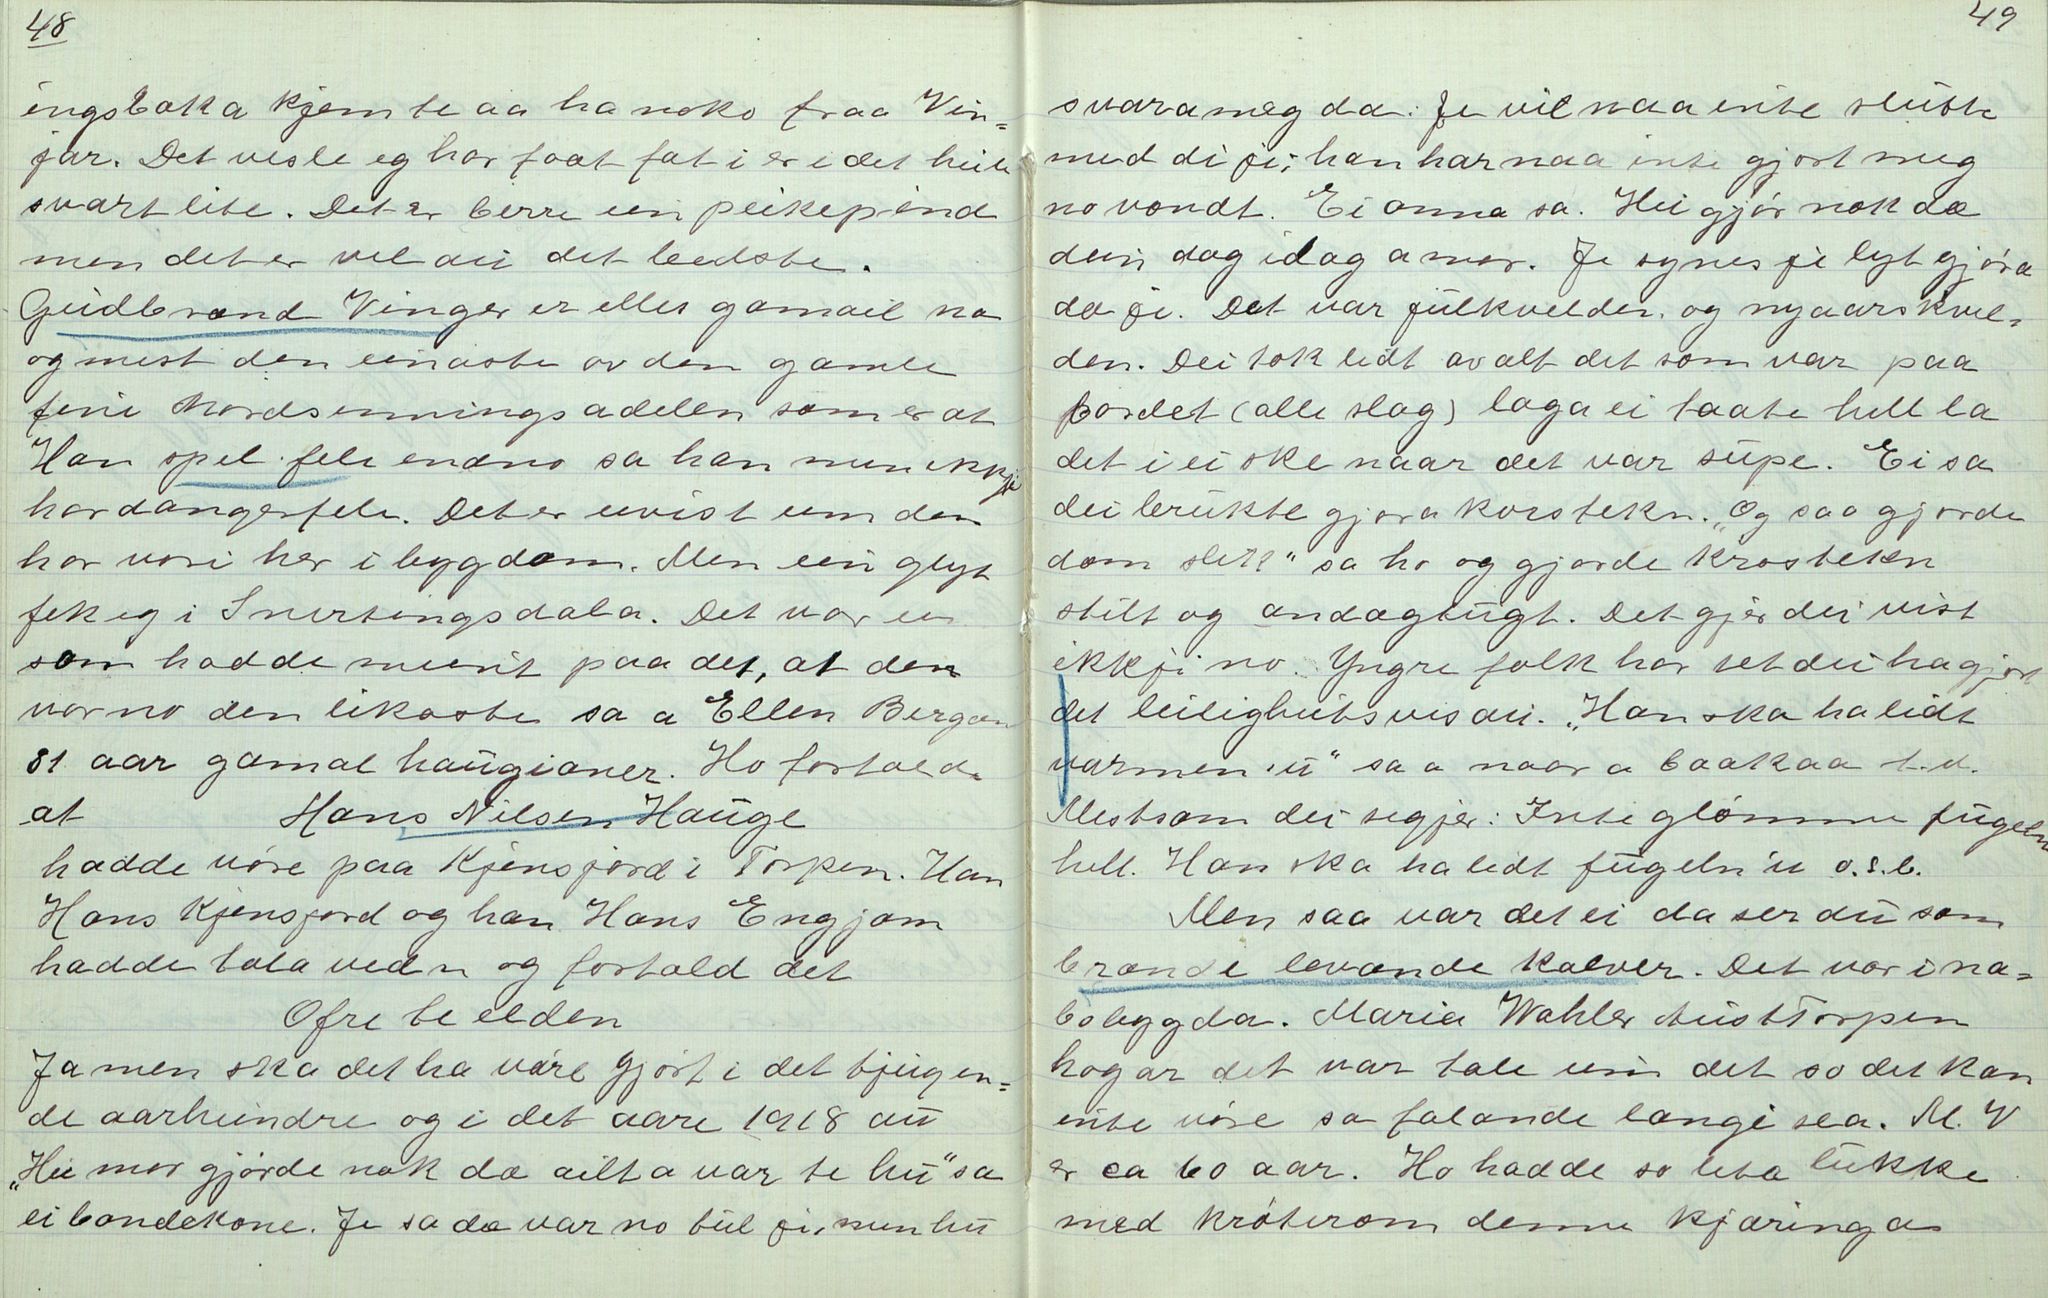 48
ingsboka kjem te aa ha noko fraa Vin=
jar. Det vesle eg har faat fat i er i det heile
svart lite. Det er berre ein peikepind
men det er vel au det bedste.
Gudbrand Vinger er elles gamail no
og mest den einaste av den gamle
feine Nordsinningsadelen som er at
Han spel fele endno sa han men ikkje
hardangerfele. Det er uvist um den
har vori her i bygdom. Men ein glyt
fek eg i Snertingsdala. Det var ein
som hadde meint paa det, at den
var no den likaste sa a Ellen Bergan
81 aar gamal haugianer. Ho fortalde
at Hans Nilsen Hauge
hadde vöre paa Kjensjord i Torpen. Han
Hans Kjensjord og han Hans Engjom
hadde tala ved n og fortald det
Ofre te elden
Ja men ska det ha vöre gjort i det tjugen=
de aarhundre og i det aare 1918 au
„Hu mor gjörde nok dæ ailt a var te hu" sa
ei bondekone. Je sa dæ var no tul je, men hu
49
svara meg da: Je vil naa inte slutte
med di je; han har naa inte gjort meg
no vondt. Ei anna sa. Hu gjör nok dæ
dein dag idag a mor. Je synes je lyt gjöra
dæ je. Det var julkvelden og nyaarskvel=
den. Dei tok lidt av alt det som var paa
bordet (alle slag) laga ei taate hell la
det i ei ske naar det var supe. Ei sa
dei brukte gjöra korstekn. „Og saa gjorde
dom slik" sa ho og gjorde krosteken
stilt og andagtugt. Det gjer dei vist
ikkji no. Yngre folk har set dei ha gjort
det leilighetsvis au. „Han ska ha lidt
varmen 'u" sa a naar a baaka t.d.
Mest som dei segjer: Inte glömme fugeln
hell. Han ska ha lidt fugeln 'u o.s.b.
Men saa var det ei da ser du som
brænde levande kalver. Det var i na=
bobygda. Maria Wahler AustTorpen
hogar det var tale um det so det kan
inte vöre sa falande længe sea. M. V
er ca 60 aar. Ho hadde so lita lukke
med kröterom denne kjæringa